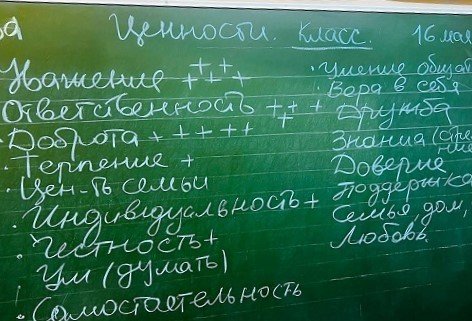 Ценности. Класс. 16 мая
Уважение +++++
Ответственность ++++
Доброта +++++
Терпение +
Цен-ть семьи
Индивидуальность +
Честность +
Ум (думать)
Самостоятельность
Умение
Вера в себя
Дружба
Знания
Доверие
Поддержка
Семья, дом,
Любовь.